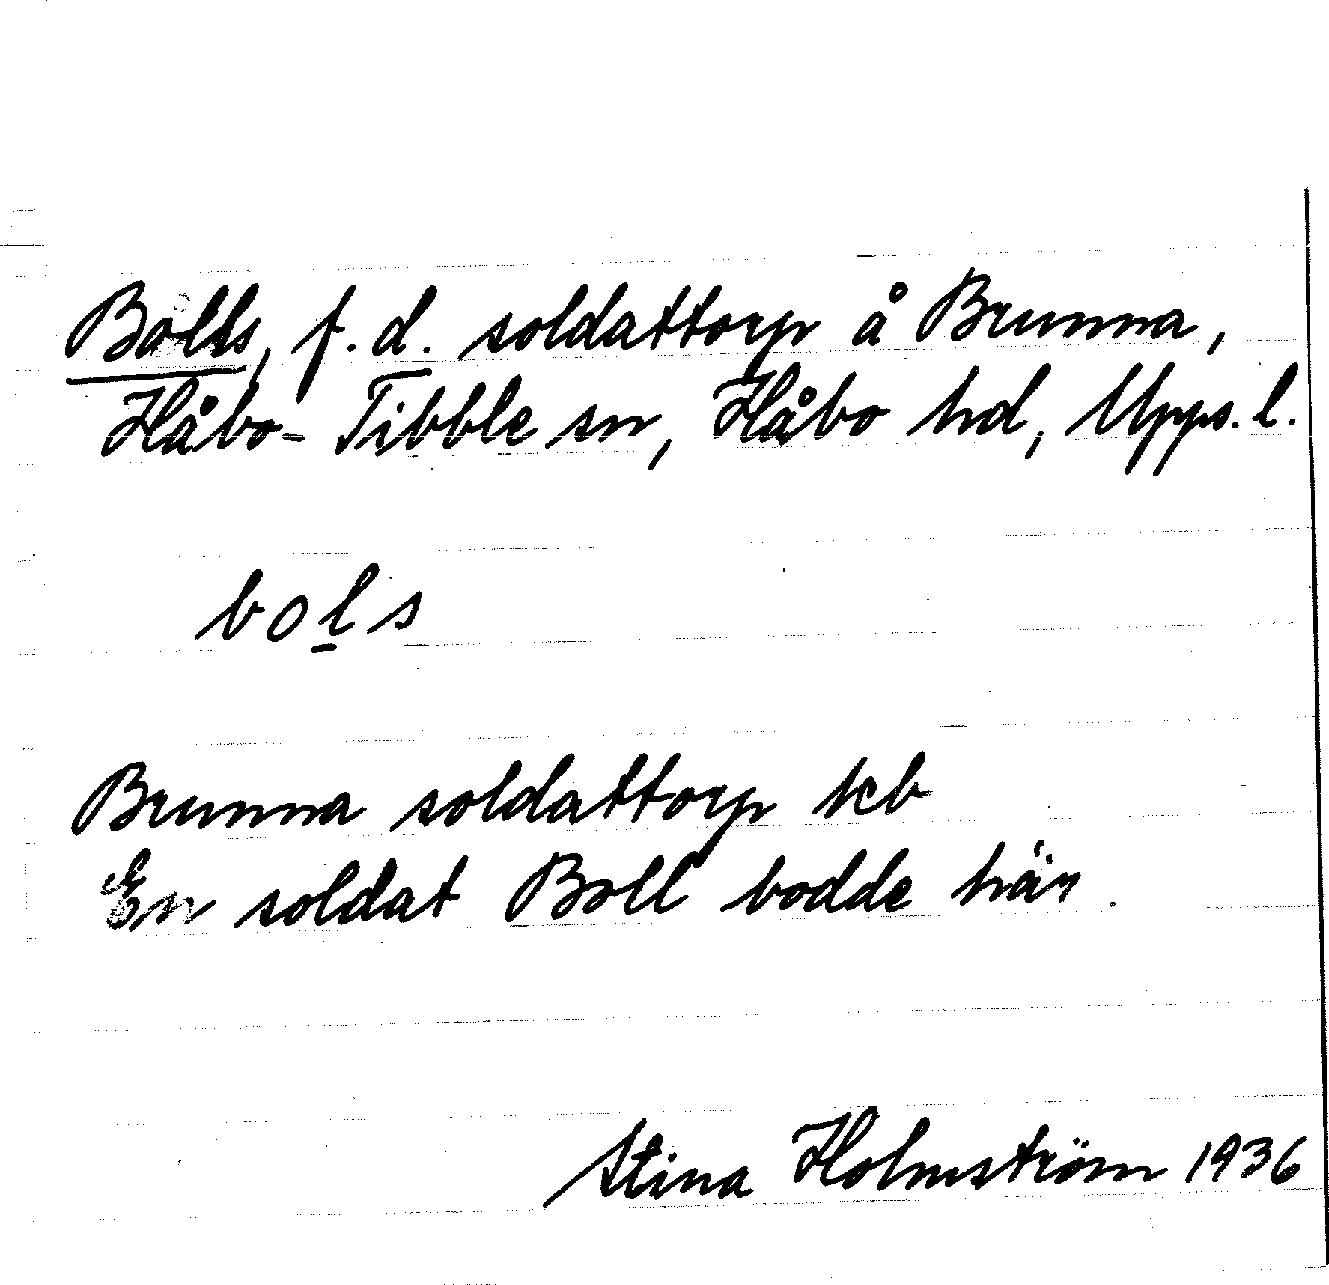 Bolls, f.d. soldattorp å Brunna,
Håbo-Tibble sn, Håbo hd, Upps.l.
bols
Brunna soldattorp kcb
En soldat Boll bodde här.
Stina Holmström 1936